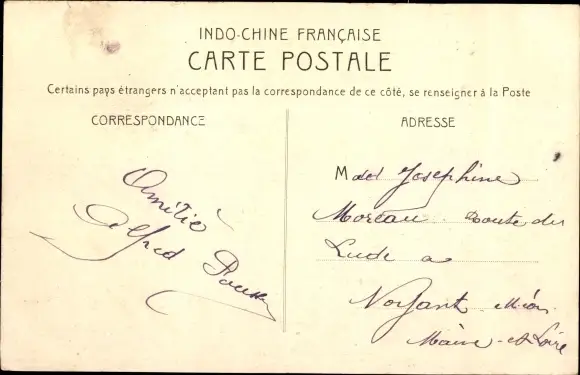 INDO-CHINE FRANÇAISE
CARTE POSTALE
Certains pays étrangers n'acceptent pas la correspondance de ce côté, se renseigner à la Poste
CORRESPONDANCE
Amitié
Alfred
ADRESSE
Madel Josephine
Moreau Route du
Lude a
Noyant
Maine-et-Loire